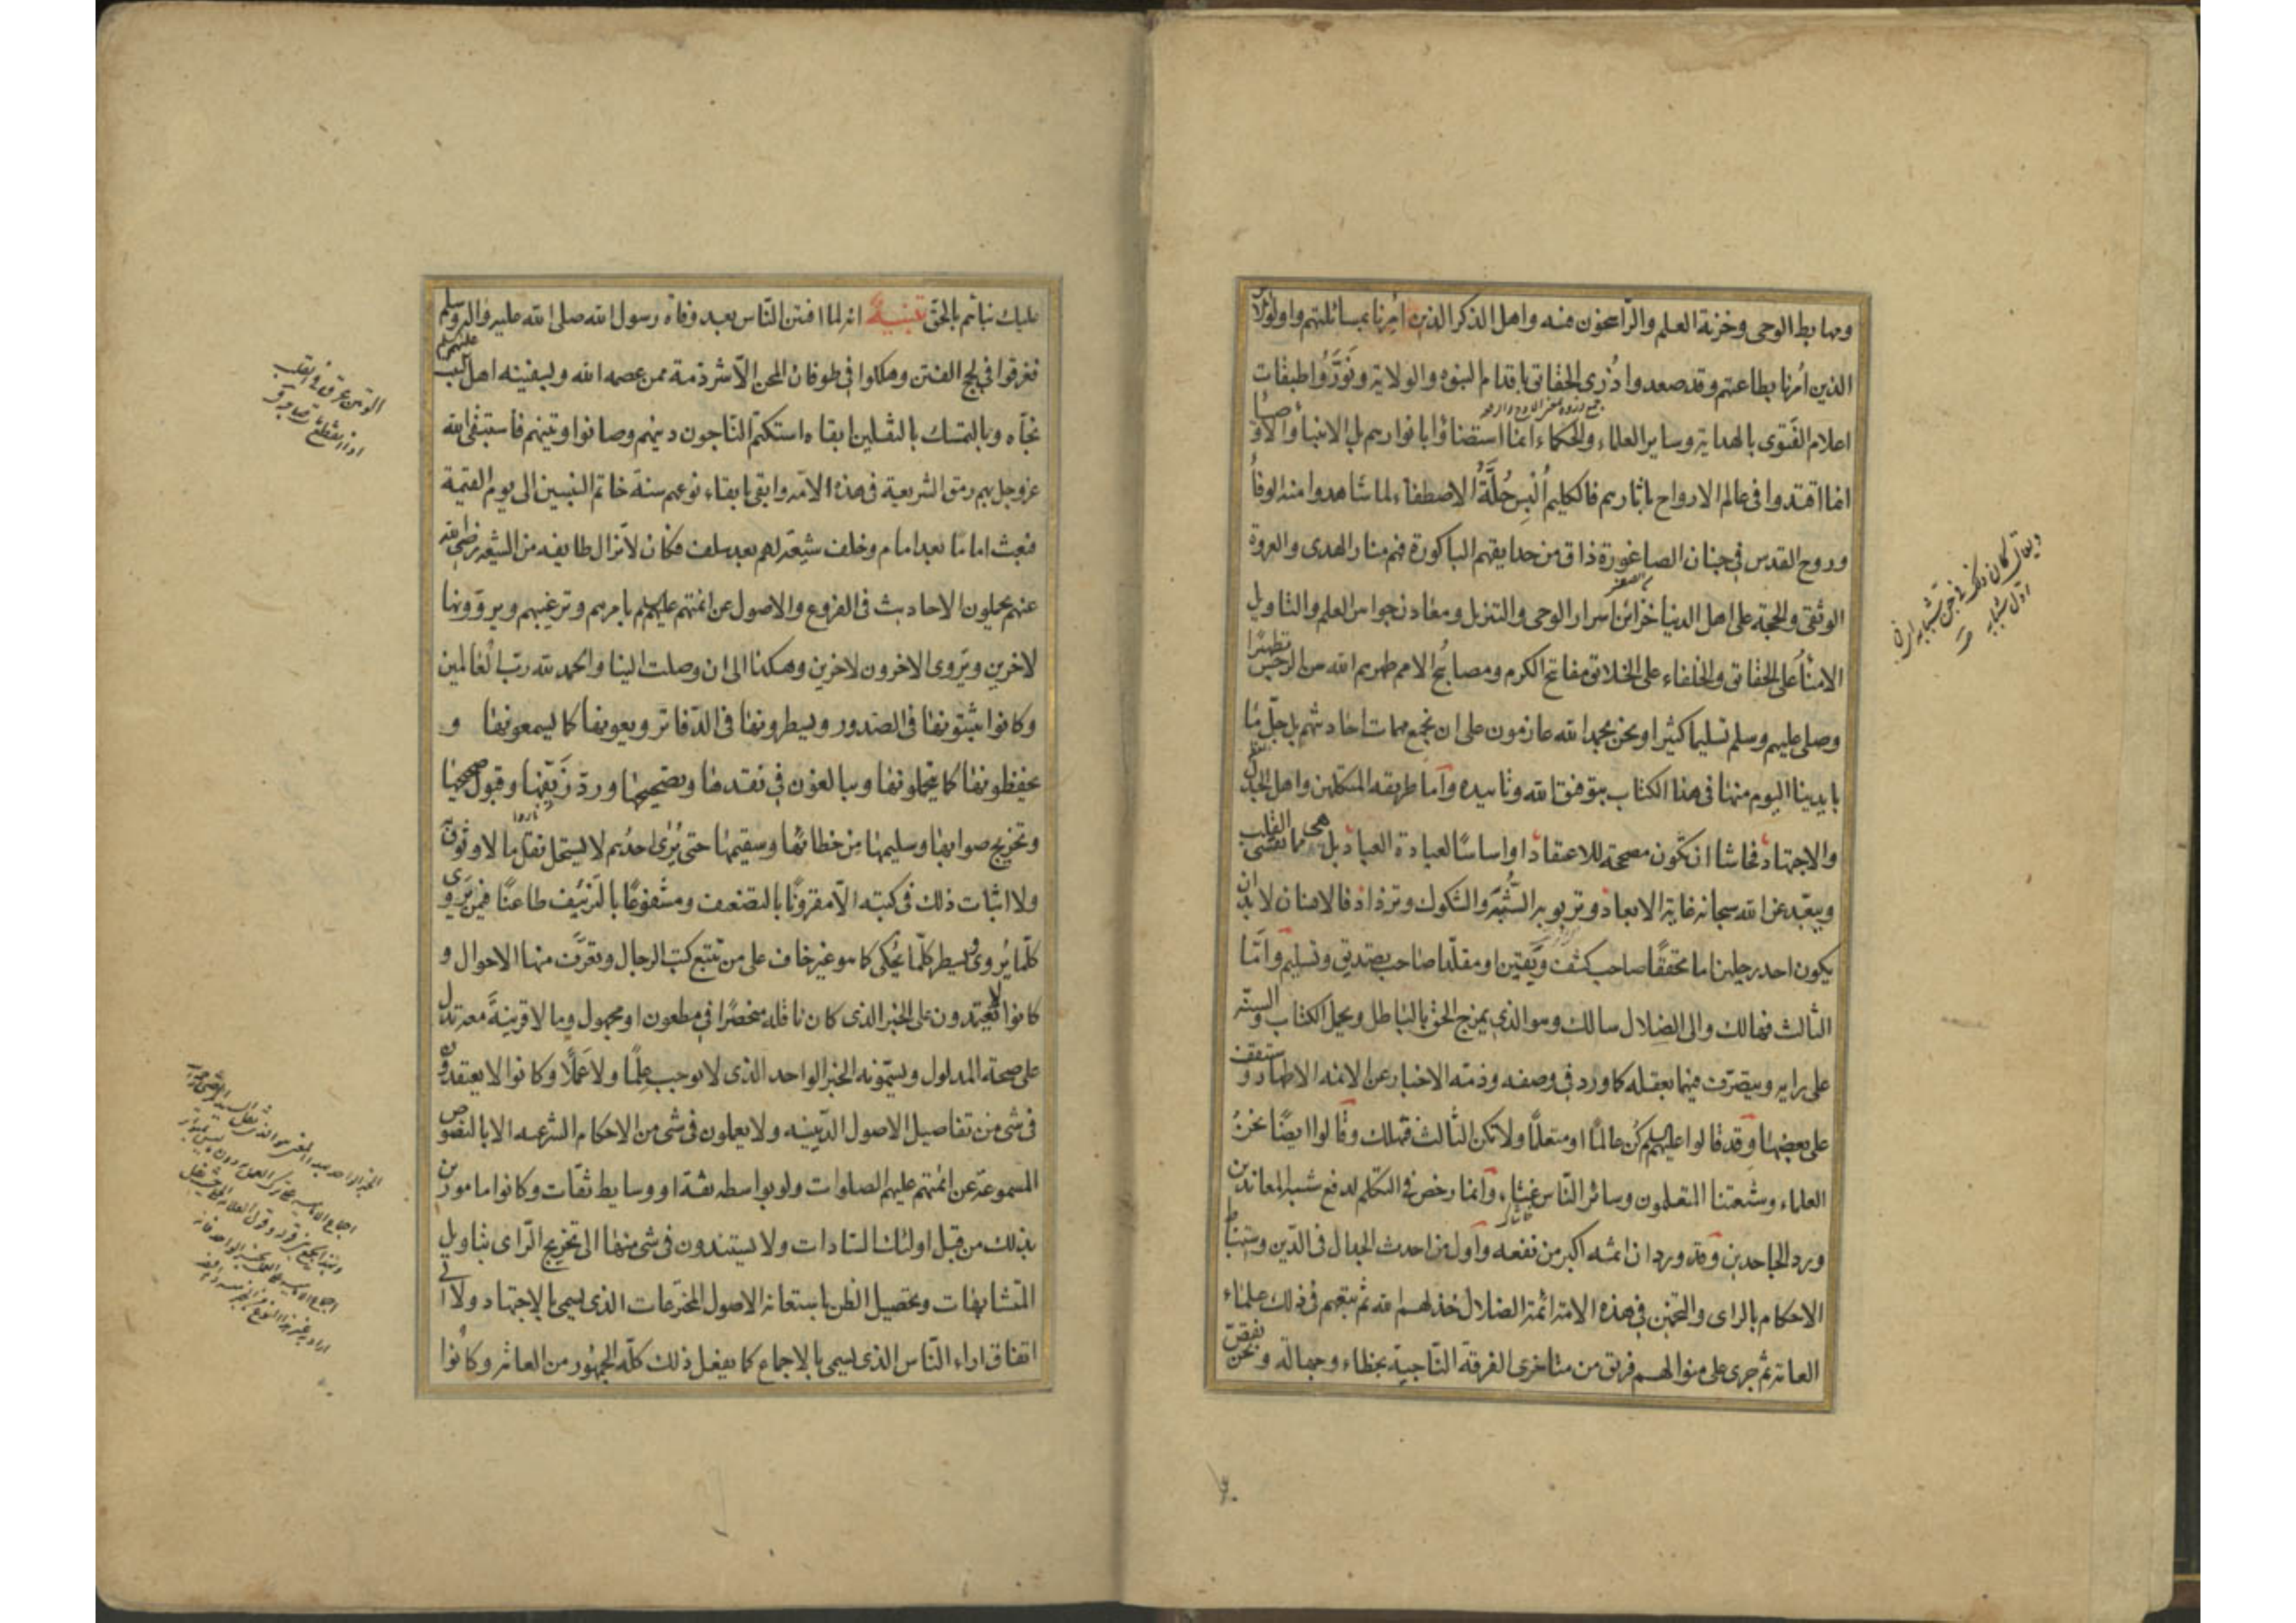 ومهابط الوحى وخزنة العلم والراسخون فيه واهل الذكر الذين امرنا بمسائلتهم واولو الامر
الذين امرنا بطاعتهم وقد صعدوا ذُرى الحقائق باقدام النبوه والولاية ونَوَّرُوا طبقات
اعلام الفَتوى بالهداية وساير العلماء والحكماء انما استضاؤا بانوارهم بل الانبياء والاوصياء
انما اقتدوا فى عالم الارواح باثارهم فالكليم اُلْبِس حُلَّةُ الاصطفاء لما شاهدوا منه الوفاُ
وروح القدس فى جنان الصاغورة ذاق من حدايقهم الباكورة فهم منار الهدى والعروة
الوثقى والحجة على اهل الدنيا خزائن اسرار الوحى والتنزيل ومعادن جواهر العلم والتاويل
الامناُ على الحقائق والخلفاء على الخلائق مفاتح الكرم ومصابيح الامم طهرهم الله من الرجس تطهيرًا
وصلى عليهم وسلم تسليما كثيرا ونحن بحمد الله عازمون على ان نجمع مهمات احاديثهم بل جلّ ما
بايدينا اليوم منها فى هذا الكتاب بتوفيق الله وتاييده وامّا طريقه المتكلمين واهل الجدل
والاجتهاد فحاشا ان تكون مصححة للاعتقاد او اساسًا لعبادة العباد بل هى مما تقسى القلب
ويبعّد عن الله سبحانه غاية الابعاد وتربو به الشُّبَه والشكوك وتزداد فالانسان لا بد ان
يكون احد رجلين اما محققًا صاحب كشف ويقين او مقلّدا صاحب تصديق وتسليم وامّا
الثالث فهالك والى الضلال سالك وهو الذى يمزج الحق بالباطل ويحمل الكتاب والسنة
على رايه ويتصرّف فيهما بعقله كما ورد فى وصفه وذمّه الاخبار عن الائمه الاطهار وستقف
على بعضها وقد قالوا عليهم السلم كُن عالمًا او متعلمًا ولا تكن الثالث فتهلك وقالوا ايضًا نحنُ
العلماء وشيعتنا المتعلمون وسائر الناس غثاء وانما رخص فى التكلم لدفع شبه المعاندين
ورد الجاحدين وقد ورد ان اثمه اكبر من نفعه واول من احدث الجدال فى الدّين واستنباط
الاحكام بالراى والتخمين فى هذه الامة ائمة الضلال خذلهم الله ثم تبعهم فى ذلك علماء
العامة ثم جرى على منوالهم فريق من متاخرى الفرقة النّاجية بخطاء وجهالة ونحن نقص
ويقال كان ذلك فى
عليك نباهم بالحق تنبيهٌ انه لما افتتن النّاس بعد وفاة رسول الله صلى الله عليه واله وسلم
فغرقوا فى لجج الفتن وهلكوا فى طوفان المحن الّا شرذمة ممن عصمه الله وبسفينه اهل البيت عليهم السلم
نجّاه وبالتمسك بالثقلين ابقاه استكتم النّاجون دينهم وصانوا وتينهم فاستبقى الله
عز وجل بهم رمق الشريعة فى هذه الامّه وابقى بابقاء نوعهم سنة خاتم النبيين الى يوم القيمة
فبعث امامًا بعد امام وخلف شيعة لهم بعد سلف فكان لا تزال طايفه من الشيعه رضى الله
عنهم يحملون الاحاديث فى الفروع والاصول عن ائمتهم عليهم السلم بامرهم وترغيبهم ويروونها
لاخرين ويروى الاخرون لاخرين وهكذا الى ان وصلت الينا والحمد لله ربّ العالمين
وكانوا يثبتونها فى الصدور ويسطرونها فى الدّفاتر ويعونها كما يسمعونها و
يحفظونها كما يتحملونها ويبالغون فى نقدها وتصحيحها وردّ زَيِّفها وقبول صحيحها
وتخريج صوابها وسليمها من خطائها وسقيمها حتى يُرى احدُهم لا يستحل نقل ما لا وثوق
ولا اثبات ذلك فى كتبه الّا مقرونًا بالتضعيف ومشفوعًا بالتزئيف طاعنًا فيمن يروى
كلّما يُروى ويسطر كلّما يُحكى كما هو غير خاف على من تتبع كتب الرجال وتعرّف منها الاحوال و
كانوا لا يعتمدون على الخبر الذى كان ناقله منحصرًا فى مطعون او مجهول وما لا قرينةَ معه تدل
على صحة المدلول ويسمّونه الخبر الواحد الذى لا يوجب عِلمًا ولا عَمَلًا وكانوا لا يعتقدون
فى شى من تفاصيل الاصول الدّينيه ولا يعملون فى شى من الاحكام الشرعيه الا بالنصوص
المسموعة عن ائمتهم عليهم الصلوات ولو بواسطه ثقة او وسايط ثقات وكانوا مامورين
بذلك من قبل اولئك السّادات ولا يستندون فى شى منها الى تخريج الرّاى بتاويل
المتشابهات وتحصيل الظن باستعانة الاصول المخترعات الذى يسمى بالاجتهاد ولا الى
اتفاق اراء النّاس الذى يسمى بالاجماع كما يفعل ذلك كلّه الجمهور من العامة وكانُوا
الوتين عرق فى القلب
اذا انقطع مات صاحبه